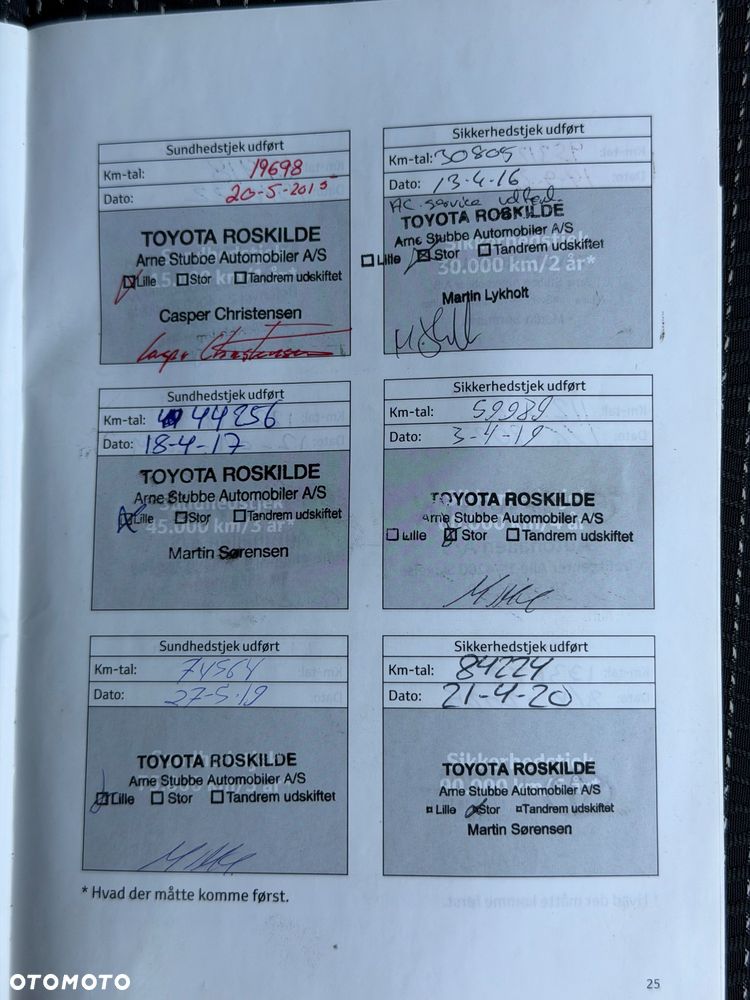 Sundhedstjek udført
Km-tal: 19698
Dato: 20-5-2015
TOYOTA ROSKILDE
Arne Stubbe Automobiler A/S
Lille Stor Tandrem udskiftet
Casper Christensen
Casper Christensen
Sikkerhedstjek udført
Km-tal: 30805
Dato: 13-4-16
AC-service udført
TOYOTA ROSKILDE
Arne Stubbe Automobiler A/S
Lille Stor Tandrem udskiftet
30.000 km/2 år*
Martin Lykholt
Sundhedstjek udført
Km-tal: 44256
Dato: 18-4-17
TOYOTA ROSKILDE
Arne Stubbe Automobiler A/S
Lille Stor Tandrem udskiftet
45.000 km/3 år*
Martin Sørensen
Sikkerhedstjek udført
Km-tal: 59989
Dato: 3-4-19
TOYOTA ROSKILDE
Arne Stubbe Automobiler A/S
Lille Stor Tandrem udskiftet
Sundhedstjek udført
Km-tal: 74564
Dato: 27-5-19
TOYOTA ROSKILDE
Arne Stubbe Automobiler A/S
Lille Stor Tandrem udskiftet
Sikkerhedstjek udført
Km-tal: 84224
Dato: 21-4-20
Sikkerhedstjek
TOYOTA ROSKILDE
Arne Stubbe Automobiler A/S
Lille Stor Tandrem udskiftet
Martin Sørensen
* Hvad der måtte komme først.
25
OTOMOTO